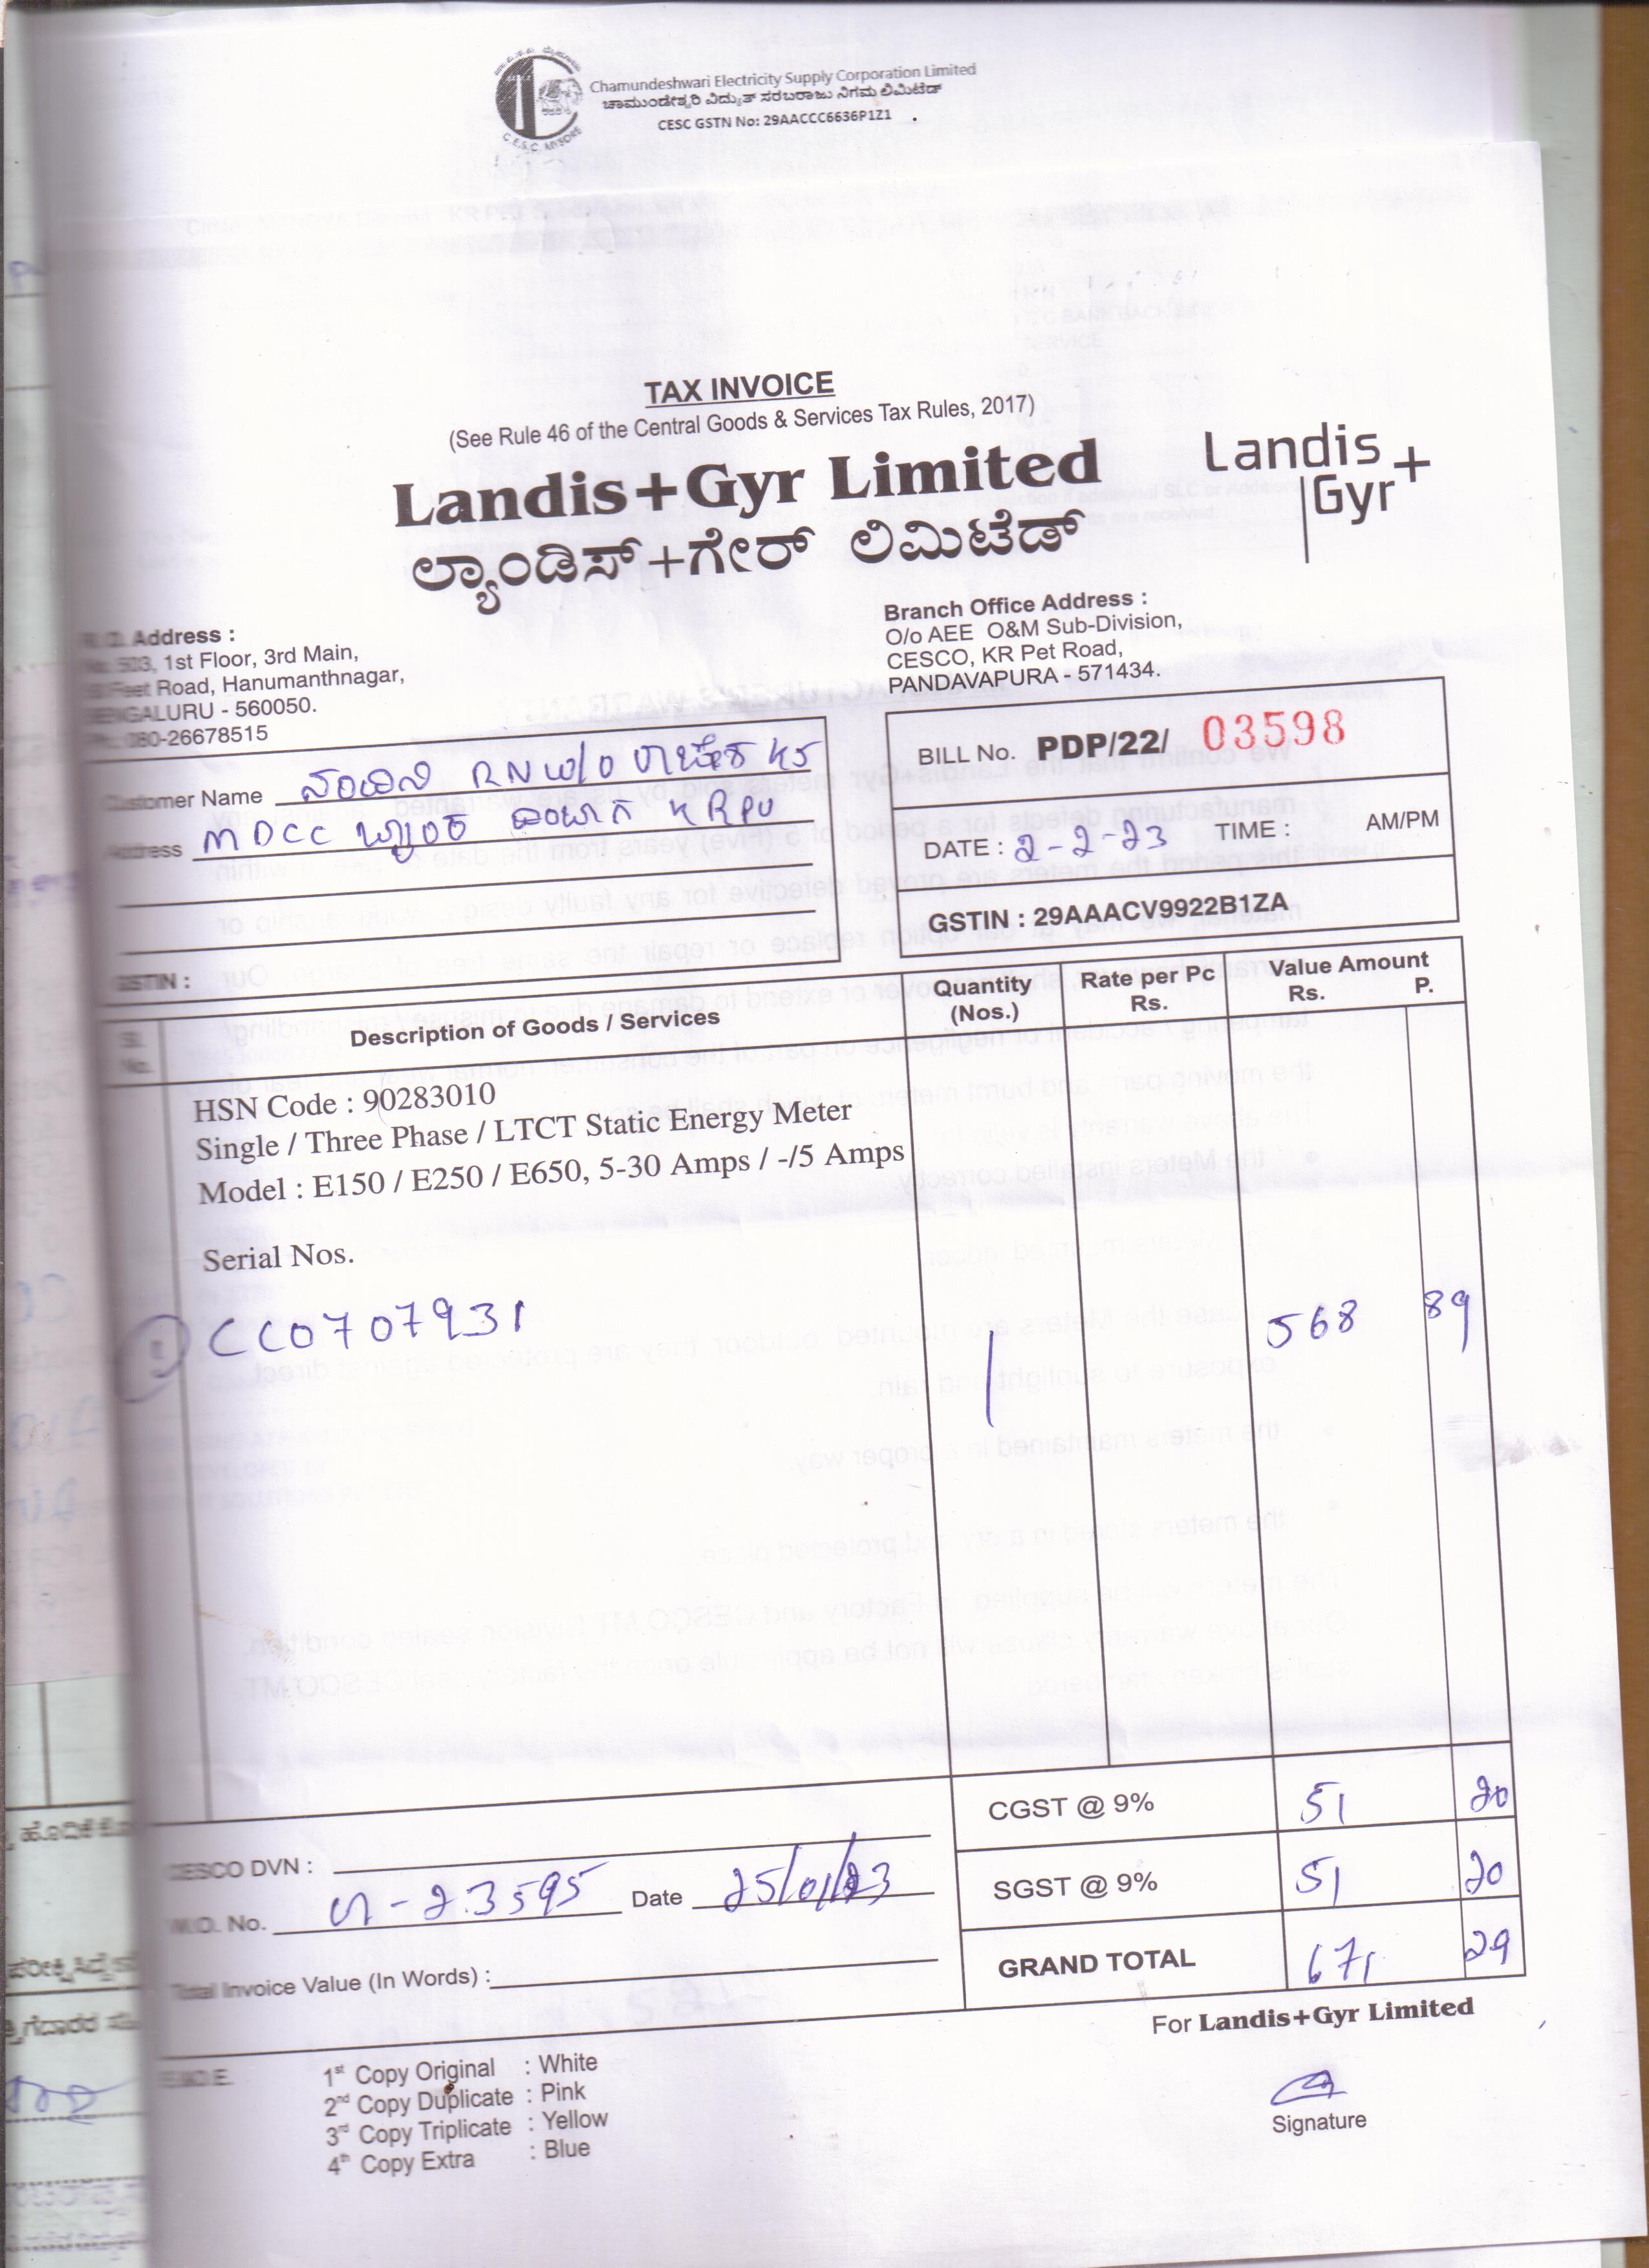 Chamundeshwari Electricity Supply Corporation Limited
ಚಾಮುಂಡೇಶ್ವರಿ ವಿದ್ಯುತ್ ಸರಬರಾಜು ನಿಗಮ ಲಿಮಿಟೆಡ್
CESC GSTN No: 29AACCC6636P1Z1
C.E.S.C. MYSORE
TAX INVOICE
(See Rule 46 of the Central Goods & Services Tax Rules, 2017)
Landis+Gyr Limited
ಲ್ಯಾಂಡಿಸ್+ಗೇರ್ ಲಿಮಿಟೆಡ್
Landis
Gyr+
Address :
503, 1st Floor, 3rd Main,
Feet Road, Hanumanthnagar,
BENGALURU - 560050.
Ph.: 080-26678515
Branch Office Address :
O/o AEE O&M Sub-Division,
CESCO, KR Pet Road,
PANDAVAPURA - 571434.
Customer Name ನಂದಿನಿ RN W/O KS
Address MDCC ಬ್ಯಾಂಕ್ KRPU
GSTIN :
BILL No. PDP/22/ 03598
DATE : 2-2-23 TIME : AM/PM
GSTIN : 29AAACV9922B1ZA
Sl. No. Description of Goods / Services Quantity (Nos.) Rate per Pc Rs. Value Amount Rs. P.
HSN Code : 90283010
Single / Three Phase / LTCT Static Energy Meter
Model : E150 / E250 / E650, 5-30 Amps / -/5 Amps
Serial Nos.
1 CC0707931 1 568 89
CGST @ 9% 51 20
SGST @ 9% 51 20
GRAND TOTAL 671 29
CESCO DVN :
W.O. No. 23595 Date 25/01/23
Total Invoice Value (In Words) :
For Landis+Gyr Limited
E.&O.E.
1st Copy Original : White
2nd Copy Duplicate : Pink
3rd Copy Triplicate : Yellow
4th Copy Extra : Blue
Signature